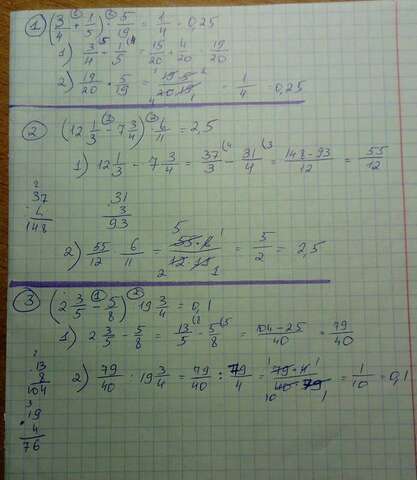 1) (3/4 + 1/5) · 5/19 = 1/4 = 0,25
1) 3/4 + 1/5 = 15/20 + 4/20 = 19/20
2) 19/20 · 5/19 = 19·5/20·19 = 1/4 = 0,25
2 (12 1/3 - 7 3/4) · 6/11 = 2,5
1) 12 1/3 - 7 3/4 = 37/3 - 31/4 = 148-93/12 = 55/12
37
4
148
31
3
93
2) 55/12 · 6/11 = 55·6/12·11 = 5/2 = 2,5
3 (2 3/5 - 5/8) : 19 3/4 = 0,1
1) 2 3/5 - 5/8 = 13/5 - 5/8 = 104-25/40 = 79/40
13
8
104
2) 79/40 : 19 3/4 = 79/40 : 79/4 = 79·4/40·79 = 1/10 = 0,1
19
4
76